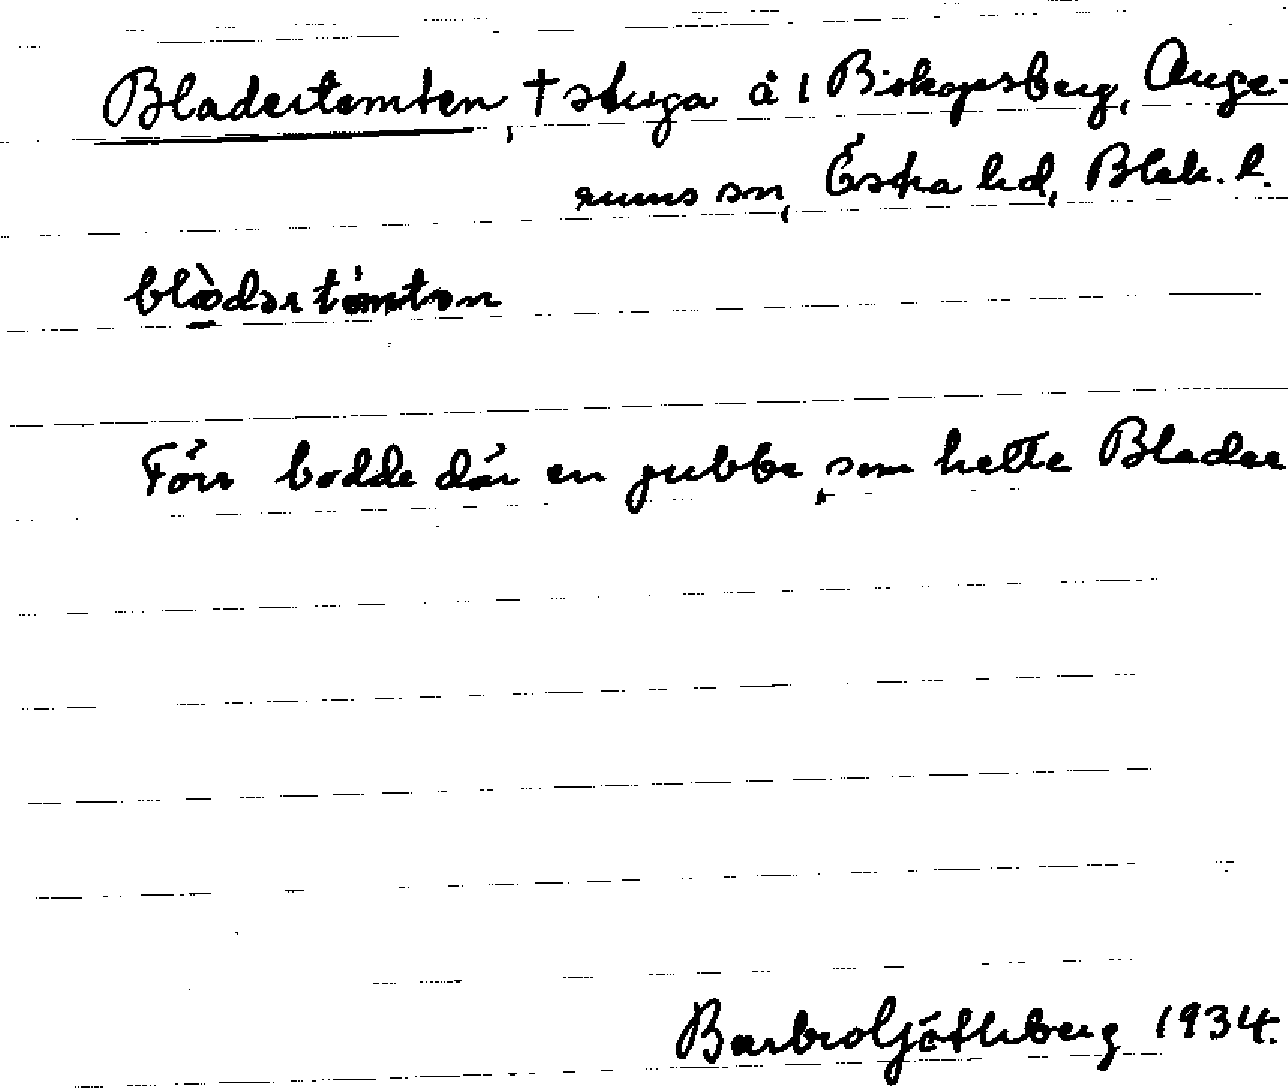 Bladertomten, † stuga å 1 Biskopsberg, Ange-
rums sn, Östra hd, Blek. l.
blòdərtómtən
Förr bodde där en gubbe som hette Blader
Barbro Götlberg 1934.